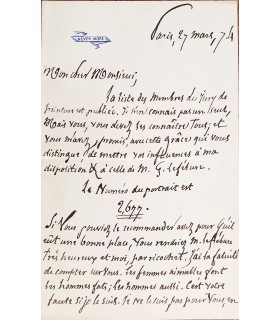 NEVER MORE
Paris, 27 mars, 74
Mon cher Monsieur,
la liste des Membres du Jury de
peinture est publiée. Je n'en connais pas un seul,
Mais vous, vous devez les connaître tous; et
vous m'avez promis, avec cette grâce qui vous
distingue de mettre vos influences à ma
disposition & à celle de M. G. Lefebure.
Le Numéro du portrait est
2677.
Si vous pouviez le recommander assez pour qu'il
eût une bonne place, vous rendriez M. Lefebure
très heureux et moi, par ricochet. J'ai la fatuité
de compter sur vous. Les femmes aimables font
les hommes fats; les hommes aussi. C'est votre
faute si je le suis. Ne le suis pas pour vous en